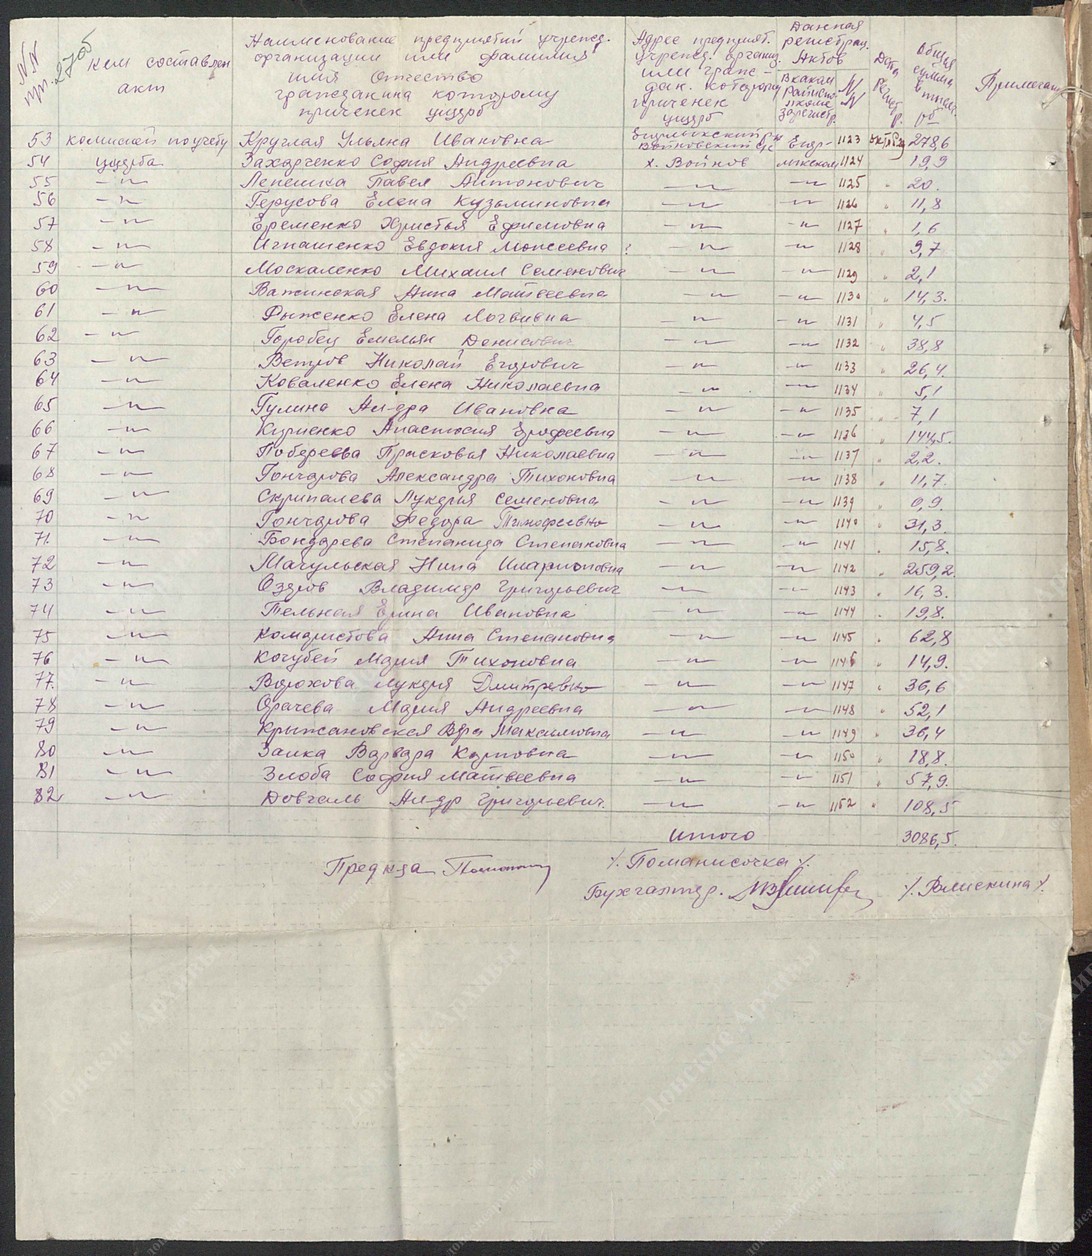 NN пр. 270б
Кем составлен акт
Наименование предприятий учрежд. организации или фамилия имя отчество гражданина которому причинен ущерб
Адрес предприят. учрежд. организ. или граждан. которому причинен ущерб
Данная регистрац. Актов
В каком Райиспол­коме зарегистр.
NN
Дата регистр.
Общая сумма
Примечание
53 комиссией по учету Круглая Ульяна Ивановна 1123 278,6
54 ущерба Захарченко София Андреевна х. Войнов 1124 19,9
55 —"— Лепешка Павел Антонович —"— —"— 1125 " 20.
56 —"— Герусова Елена Кузьминовна —"— —"— 1126 " 11,8
57 —"— Еременко Христья Ефимовна —"— —"— 1127 " 1,6
58 —"— Игнашенко Евдокия Моисеевна —"— —"— 1128 " 9,7
59 —"— Москаленко Михаил Семенович —"— —"— 1129 " 2,1
60 —"— Важинская Анна Матвеевна —"— —"— 1130 " 14,3.
61 —"— Рыженко Елена Логвивна —"— —"— 1131 " 4,5
62 —"— Горобец Емельян Денисович —"— —"— 1132 " 38,8
63 —"— Ветров Николай Егорович —"— —"— 1133 " 26,4
64 —"— Коваленко Елена Николаевна —"— —"— 1134 " 5,1
65 —"— Гулина Ал-дра Ивановна —"— —"— 1135 " 7,1
66 —"— Куриенко Анастасия Ерофеевна —"— —"— 1136 " 144,5.
67 —"— Прасковья Николаевна —"— —"— 1137 " 2,2.
68 —"— Гончарова Александра Тихоновна —"— —"— 1138 " 11,7.
69 —"— Скрипалева Лукерия Семеновна —"— —"— 1139 " 0,9.
70 —"— Гончарова Федора Тимофеевна —"— —"— 1140 " 31,3
71. —"— Бондарева Степанида Степановна —"— —"— 1141 " 15,8.
72 —"— Мачульская Нина Иларионовна —"— —"— 1142 " 259,2.
73 —"— Озеров Владимир Григорьевич —"— —"— 1143 " 16,3.
74 —"— Тельная Ерина Ивановна —"— —"— 1144 " 19,8.
75 —"— Комаристова Анна Степановна —"— —"— 1145 " 62,8
76 —"— Кочубей Мария Тихоновна —"— —"— 1146 " 14,9.
77. —"— Ворохова Лукерия Дмитревна —"— —"— 1147 " 36,6
78 —"— Орачева Мария Андреевна —"— —"— 1148 " 52,1
79 —"— Крыжановская Вера Максимовна —"— —"— 1149 " 36,4
80 —"— Заика Варвара Карповна —"— —"— 1150 " 18,8.
81 —"— Злоба София Матвеевна —"— —"— 1151 " 57,9.
82 —"— Довгаль Ал-др Григорьевич. —"— —"— 1152 " 108,5
Итого 3086,5.
Пред к-за /. Поманисочка /.
Бухгалтер.
Донские Архивы